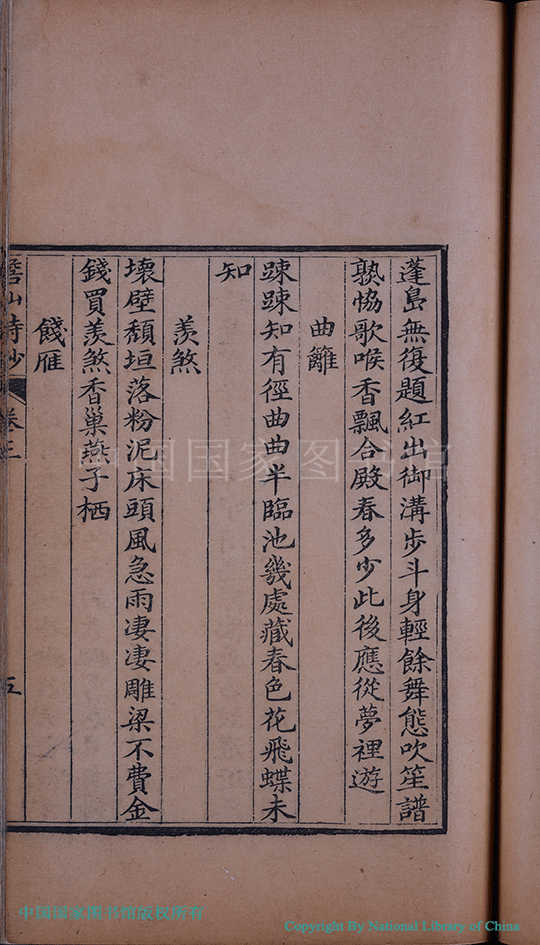 蓬島無復題紅出御溝步斗身輕餘舞態吹笙譜
孰恊歌喉香飄合殿春多少此後應從夢裡遊
曲籬
踈踈知有徑曲曲半臨池幾處藏春色花飛蝶未
知
羡煞
壞壁頹垣落粉泥床頭風急雨凄凄雕梁不費金
錢買羡煞香巢燕子栖
餞雁
山詩抄 卷三 五
中国国家图书馆
中国国家图书馆版权所有
Copyright By National Library of China